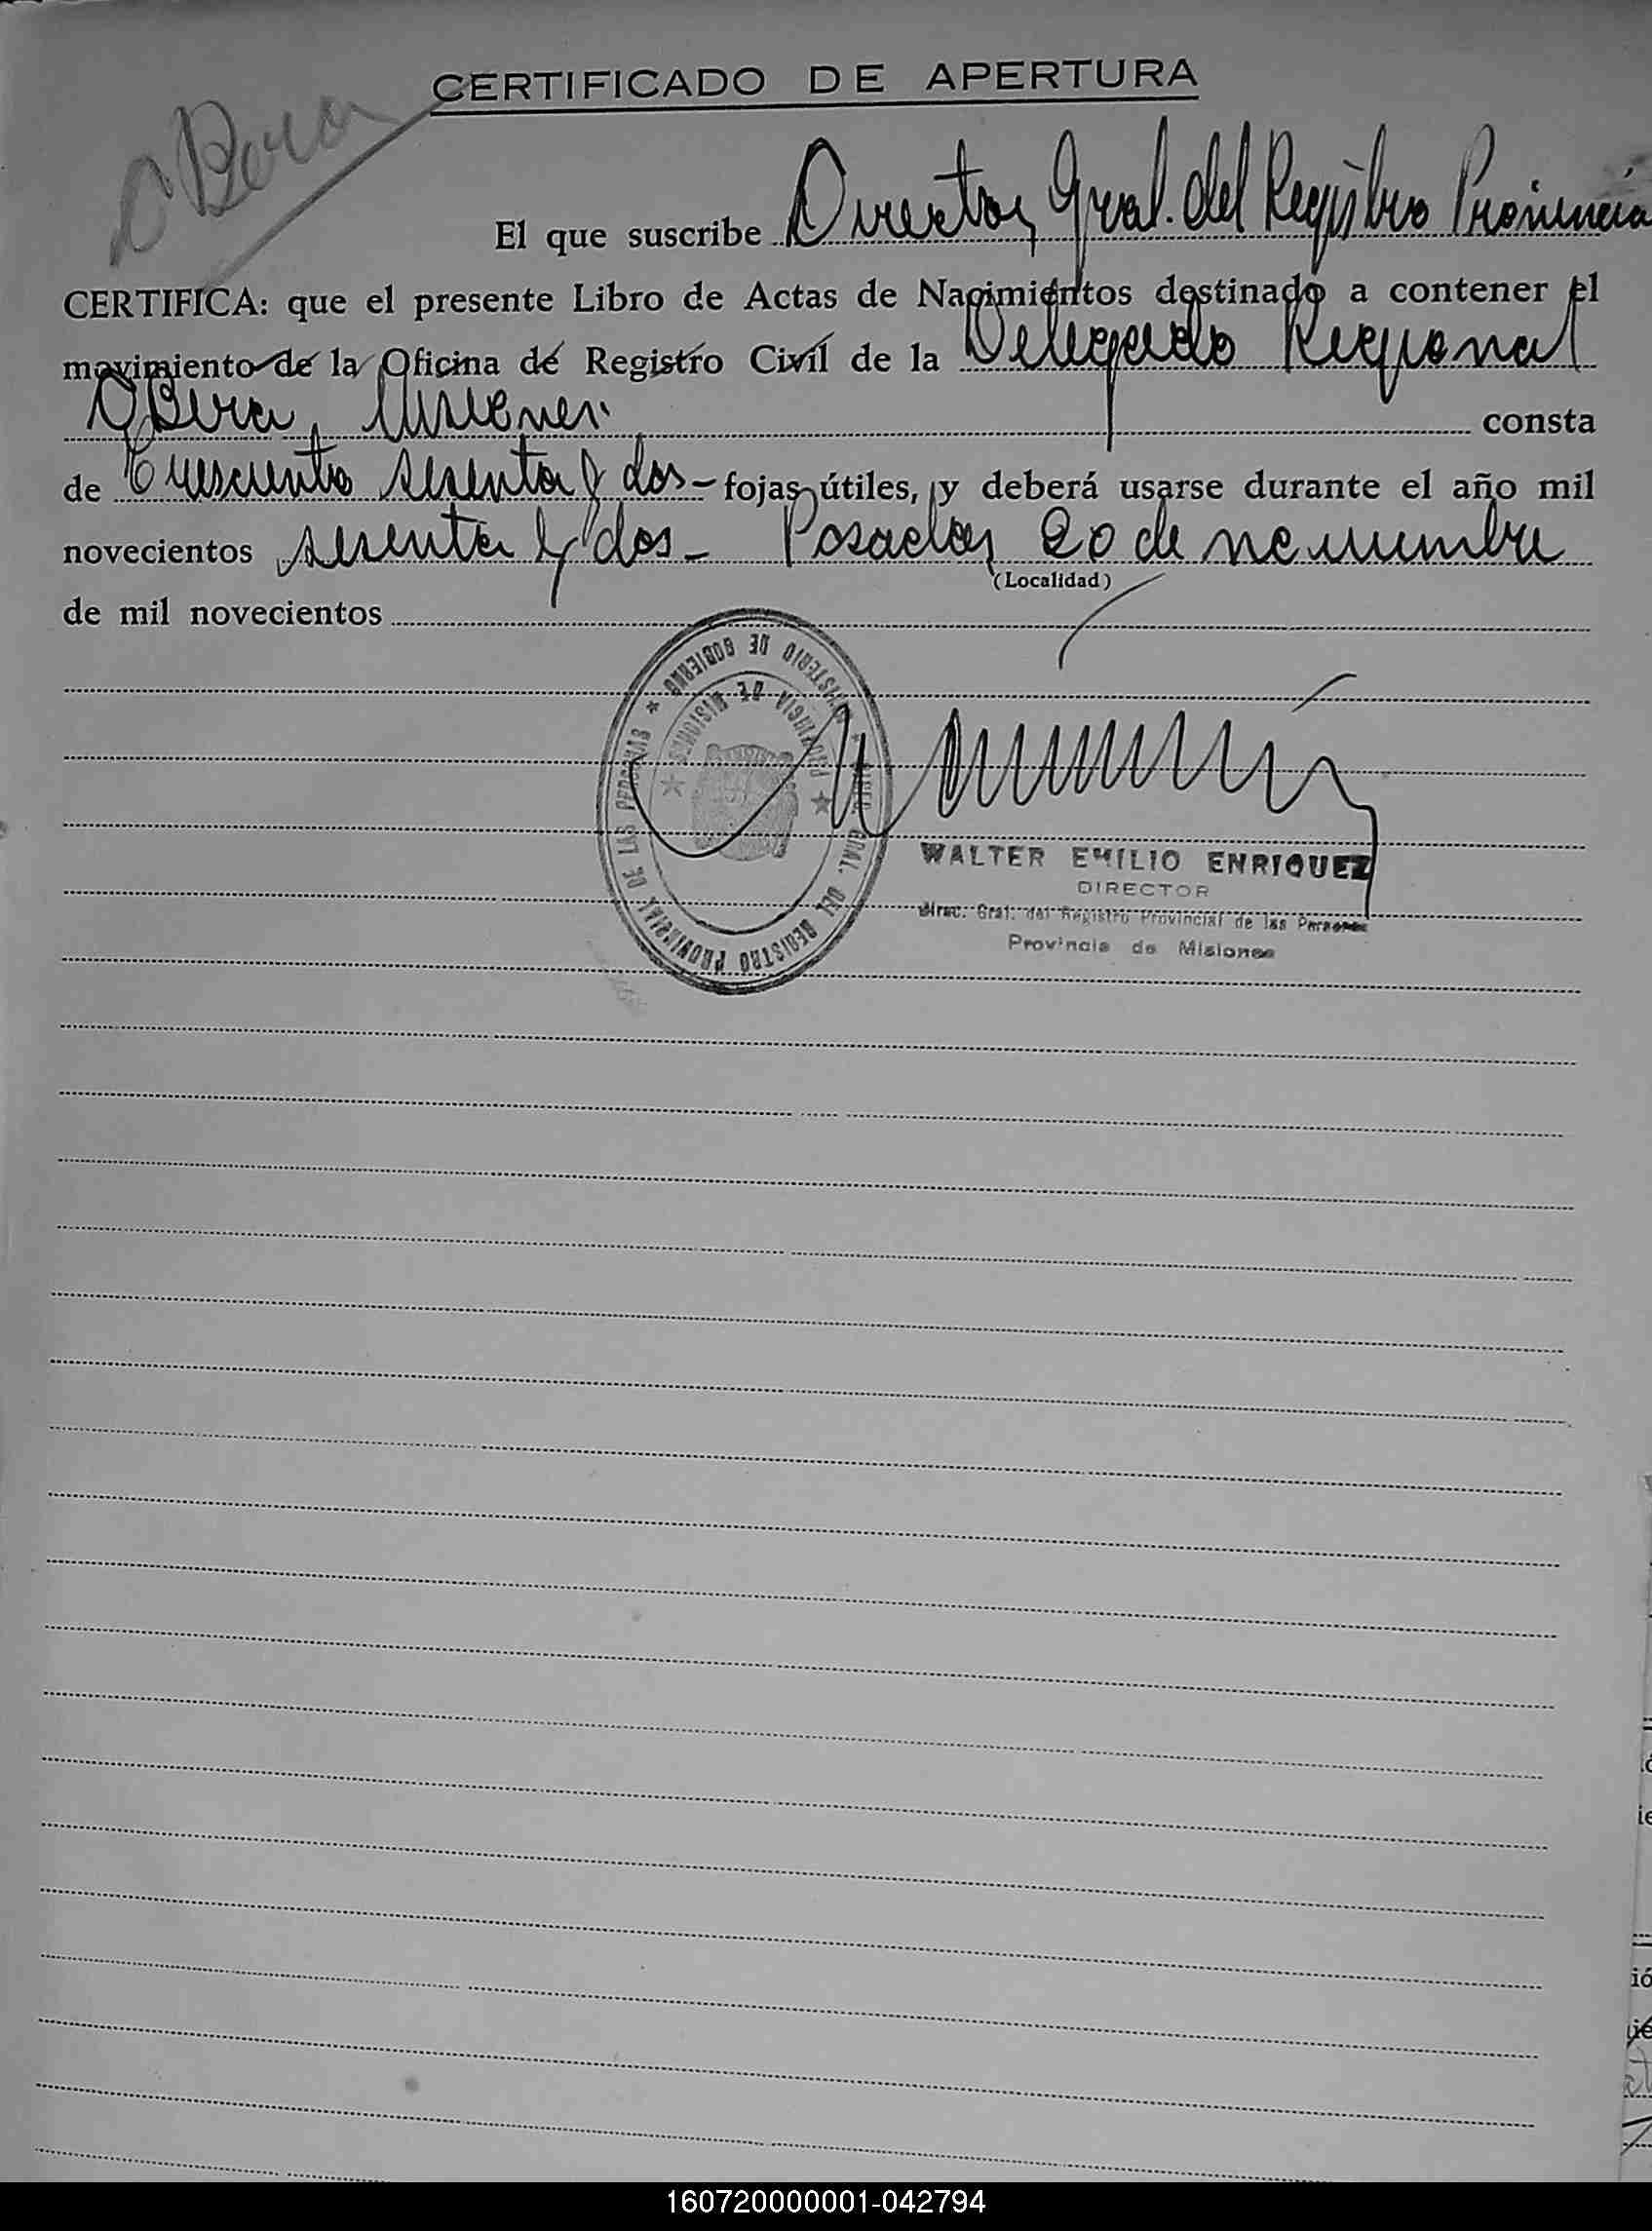 CERTIFICADO DE APERTURA
OBera
El que suscribe Director Gral. del Registro Provincial
CERTIFICA: que el presente Libro de Actas de Nacimientos destinado a contener el
movimiento de la Oficina de Registro Civil de la Delegado Regional
OBera, Misiones. consta
de Trescientos sesenta y dos - fojas útiles, y deberá usarse durante el año mil
novecientos sesenta y dos - Posadas, 20 de noviembre
(Localidad)
de mil novecientos
MINISTERIO DE GOBIERNO
DIREC. GRAL. DEL REGISTRO PROVINCIAL DE LAS PERSONAS
PROVINCIA DE MISIONES
WALTER EMILIO ENRIQUEZ
DIRECTOR
Direc. Gral. del Registro Provincial de las Personas
Provincia de Misiones
160720000001-042794